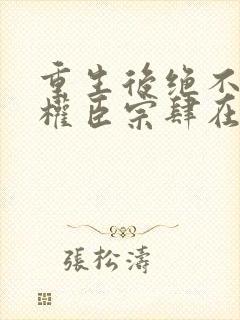 重生後绝不
權臣宗肆在
張松濤